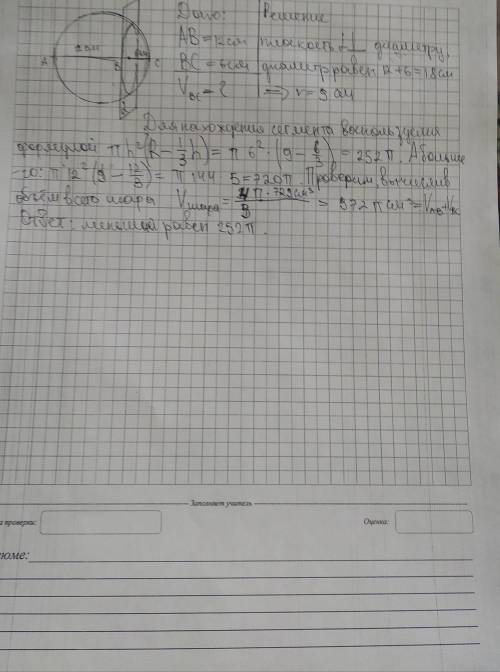 Дано: Решение
AB = 12 см плоскость ⊥ диаметру,
BC = 6 см диаметр равен 12 + 6 = 18 см
V = ? ⇒ r = 9 см
A 12 см B 6 см C
Для нахождения сегмента воспользуемся
формулой π h² (R - 1/3 h) = π 6² · (9 - 6/3) = 252 π. А больше-
го: π 12² (9 - 12/3) = π 144 5 = 720 π Проверим, вычислив
объём всего шара V шара = 4 π · 729 см³ / 3 = 972 π см³ = V AB + V BC
Ответ: меньший равен 252 π.
Заполняет учитель
а проверки: Оценка:
юме: